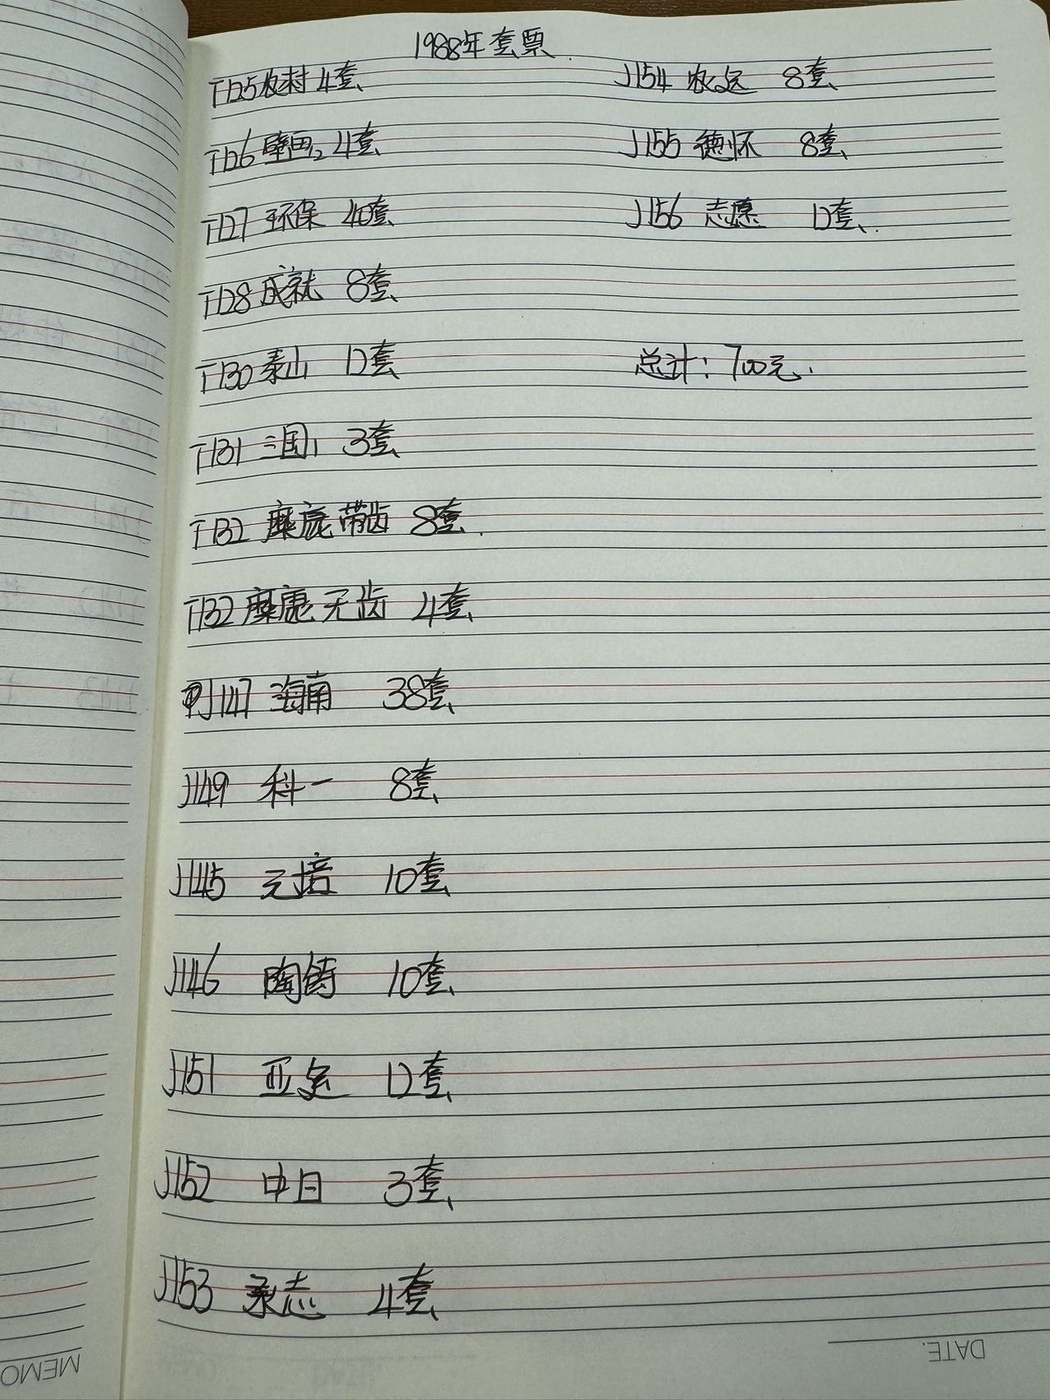 1988年套票
T125农村 4套
T126壁画2 4套
T127 环保 40套
T128 成就 8套
T130 泰山 12套
T131 三国1 3套
T132 麋鹿 带齿 8套.
T132 麋鹿 无齿 4套
J147 海南 38套
J149 科一 8套
J145 元培 10套
J146 陶铸 10套
J151 亚运 12套
J152 中日 3套
J153 承志 4套
J154 农运 8套
J155 德怀 8套
J156 志愿 12套.
总计: 700元.
MEMO
DATE.